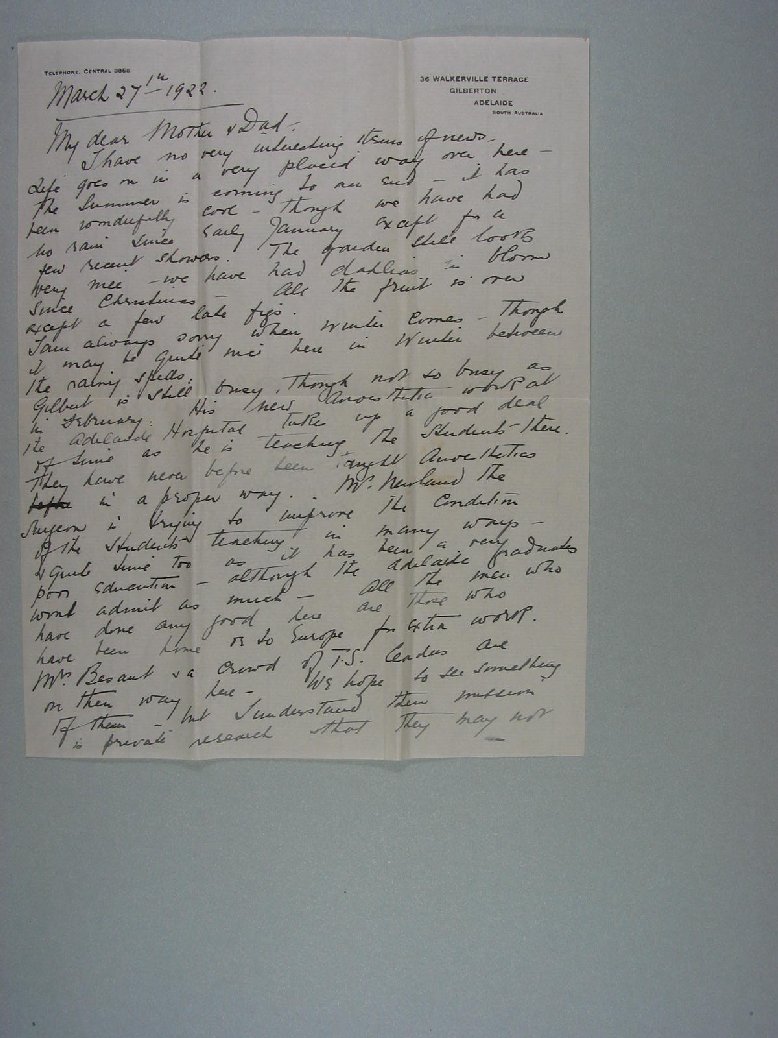 TELEPHONE, CENTRAL 3868
36 WALKERVILLE TERRACE
GILBERTON
ADELAIDE
SOUTH AUSTRALIA
March 27th 1922.
My dear Mother & Dad -
I have no very interesting items of news -
Life goes on in a very placid way over here -
The Summer is coming to an end - it has
been wonderfully cool - though we have had
no rain since early January except for a
few recent showers. The garden still looks
very nice - we have had dahlias in bloom
since Christmas - All the fruit is over
except a few late figs.
I am always sorry when winter comes - though
it may be quite nice here in Winter between
the rainy spells.
Gilbert is still busy, though not so busy as
in February. His new Anaesthetic work at
the Adelaide Hospital takes up a good deal
of time as he is teaching the Students there.
They have never before been taught Anaesthetics
before in a proper way. Mr. Newland the
Surgeon is trying to improve the Condition
of the Students teaching in many ways -
& quite time too as it has been a very
poor education - although the Adelaide graduates
wont admit as much - All the men who
have done any good here are those who
have been home or to Europe for extra work.
Mrs Besant & a crowd of T.S. leaders are
on their way here - We hope to see something
of them - but I understand their mission
is private research so that they may not